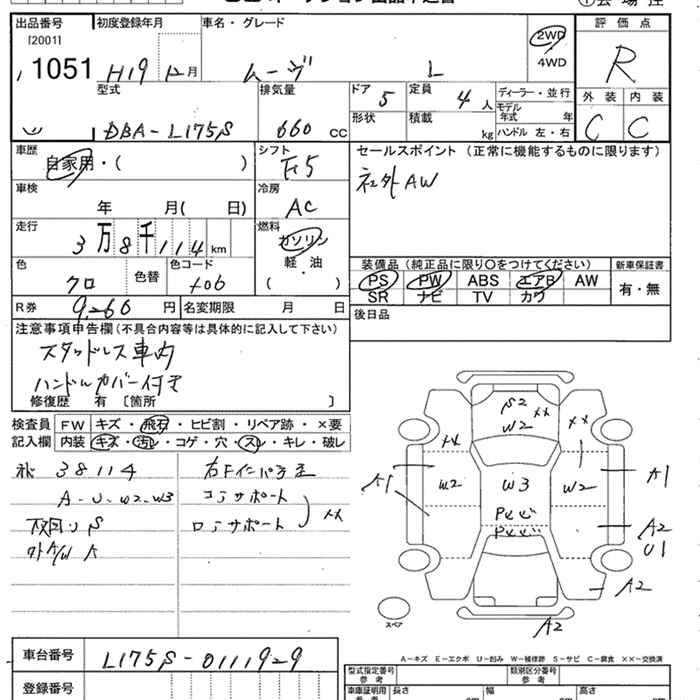 出品番号 初度登録年月 車名・グレード 評価点
[2001]
1051 H19 12月 ムーヴ L 2WD 4WD R
型式 排気量 ドア 5 定員 4人 ディーラー・並行 外装 内装
DBA-L175S 660 CC 形状 積載 kg モデル年式 年 C C
ハンドル 左・右
車歴 自家用・( ) シフト F5 セールスポイント(正常に機能するものに限ります)
車検 年 月( 日) 冷房 AC 社外AW
走行 3万8千114 km 燃料 ガソリン 軽・油 ( )
装備品(純正品に限り○をつけてください) 新車保証書
色 クロ 色替 色コード X06 PS PW ABS エアB AW 有・無
SR ナビ TV カワ
R券 9,260 円 名変期限 月 日 後日品
注意事項申告欄(不具合内容等は具体的に記入して下さい)
スタッドレス車内
ハンドルカバー付き
修復歴 有〔箇所 〕
検査員 FW キズ・飛石・ヒビ割・リペア跡・×要
記入欄 内装 キズ・汚レ・コゲ・穴・スレ・キレ・破レ
38114 右Fインパネ
A-U-W2-W3 コアサポート
S ロアサポート ××
外A/W
S2 ××
W2 ××
××
A1 W2 W3 W2 A1
A2
U1
A2
スペア A2
A-キズ E-エクボ U-凹み W-補修跡 S-サビ C-腐食 ××-交換済
車台番号 L175S-0111929 型式指定番号 参考 類別区分番号 参考
登録番号 車庫証明用 長さ 幅 高さ